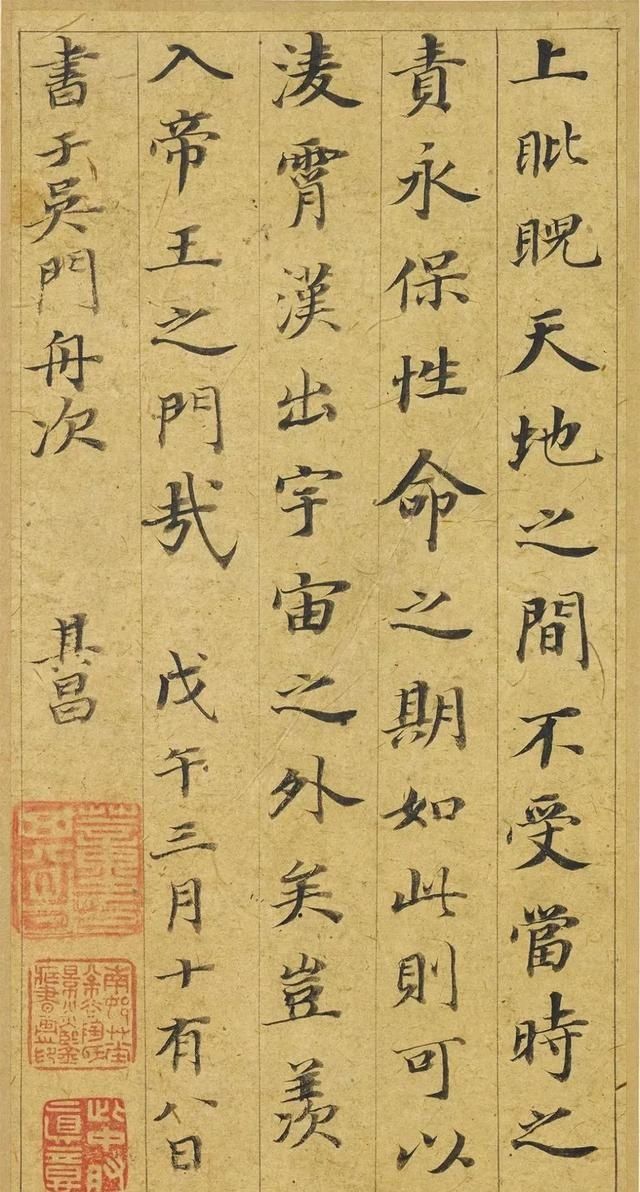 上䀝睨天地之間不受當時之
責永保性命之期如此則可以
淩霄漢出宇宙之外矣豈羨
入帝王之門哉 戊午三月十有八日
書于吳門舟次 其昌